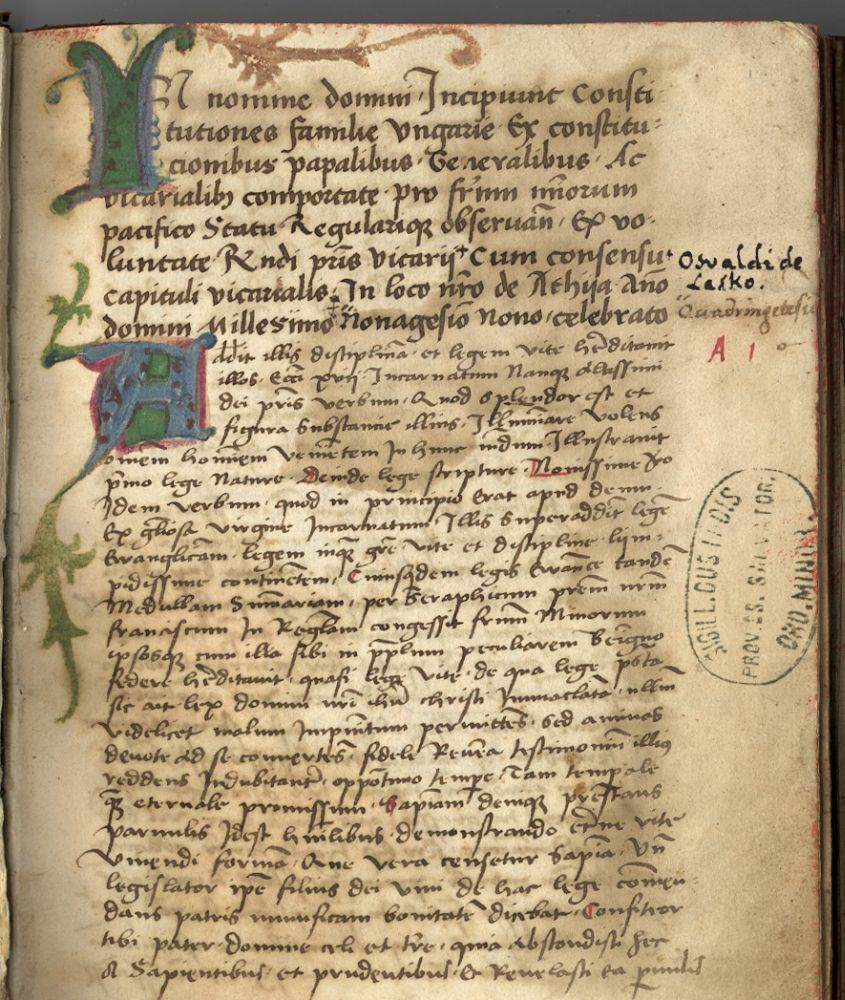 IN nomine domini Incipiunt Consti
tutiones familie Ungarie Ex constitu-
cionibus papalibus Generalibus Ac
vicarialibꝫ comportate pro fr̃um mi̅orum
pacifico Statu Regulariqꝫ observan̅ Ex vo-
luntate Rndi pris̅ vicarij+ Cum consensu
capituli vicarialis In loco nr̅o de Athija An̅o
domini Millesimo Nonagesi̅o Nono celebrato
Osvaldi de
Lasko.
Quadringetesi̅o
A 1
Addit illis disciplina̅ et legem vite he̅ditavit
illos Ecci xvij Incarnatum Nanqꝫ altissimi
dei pris̅ verbum Quod splendor est et
figura Substancie illius Illuminare volens
omnem homi̅em venie̅tem In hunc mdum Illustravit
pr̅mo lege Nature Deinde lege scripture Novissime Xo
Idem verbum quod in principio Erat apud deum
Ex gl̅iosa virgine Incarnatum Illis Superaddit lege̅
Evanglicam legem inqꝫ gr̅e vite et discipline lim-
pidissime contine̅tem Cuiusqdem legis Evan̅ce tande̅
Medullam Summariam per Seraphicum pr̅em nr̅m
franciscum In Regl̅am congessit fr̅um Minorum
ipsosqꝫ cum illa sibi in pp̅lum peculiarem
federe he̅ditavit quasi lege vite de qua lege ps̅ta
sic ait lex domini nr̅i ih̅u christi Immaculata ullum
videlicet malum Impunitum permitte̅s sed animas
devote ad se converte̅s fidele Reve̅ra testimonium illius
reddens Indubitant̅ opp̅tuno temp̅e Tam temp̅ale
qꝫ eternale promissum Sapi̅am deniqꝫ pre̅stans
parvulis Idest hu̅ilibus demonstrando et̅ne vite
vivendi forma̅ Que vera censetur Sapi̅a Vn̅
legislator ip̅e filius dei vivi de hac lege come̅n-
dans patris munificam bonitate̅ dicebat Confiteor
tibi pater domine celi et tr̅e quia abscondisti hec
A Sapientibus et prudentibus Et Revelasti ea parvulis
SIGILL.CUSTODIS
PROV. SS. SALVATOR.
ORD. MINOR.